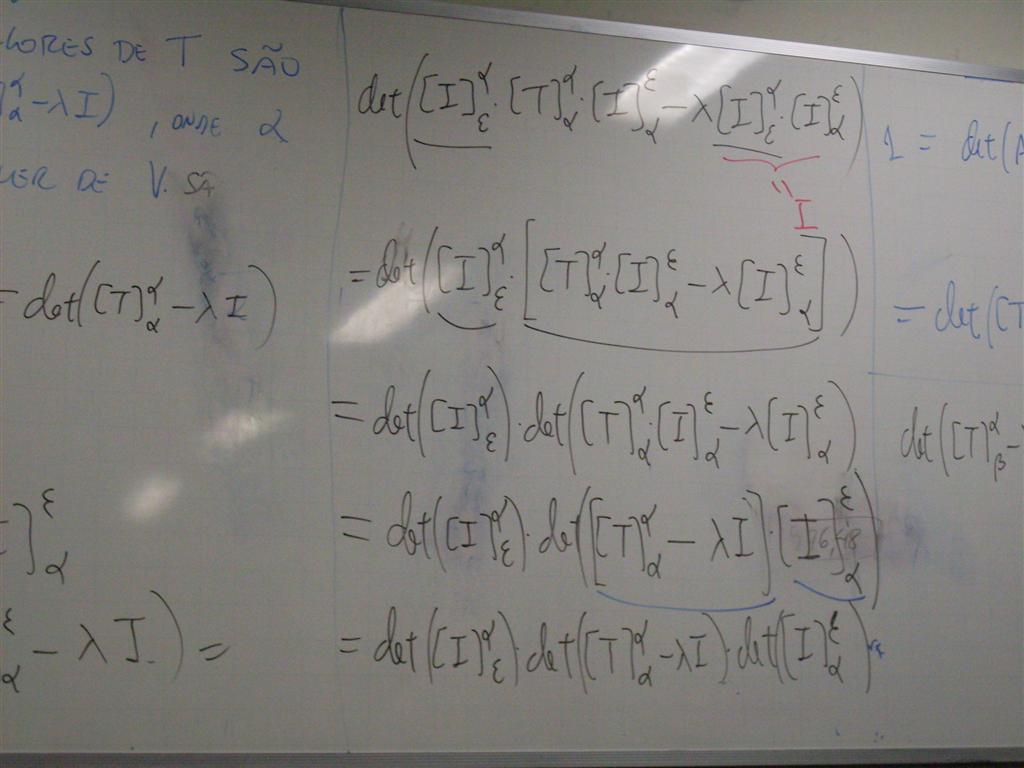 LORES DE T SÃO
]^α_α − λI) , ONDE α
UER DE V. SÃ
= det([T]^α_α − λI)
]^ε_α
^ε_α − λ I) =
det([I]^α_ε · [T]^α_α · [I]^ε_α − λ[I]^α_ε · [I]^ε_α)
= I
= det([I]^α_ε · [[T]^α_α · [I]^ε_α − λ[I]^ε_α])
= det([I]^α_ε) · det([T]^α_α · [I]^ε_α − λ[I]^ε_α)
= det([I]^α_ε) · det([[T]^α_α − λI] · [I]^ε_α)
= det([I]^α_ε) · det([T]^α_α − λI) · det([I]^ε_α)
1 = det(A
= det([T
det([T]^α_β −